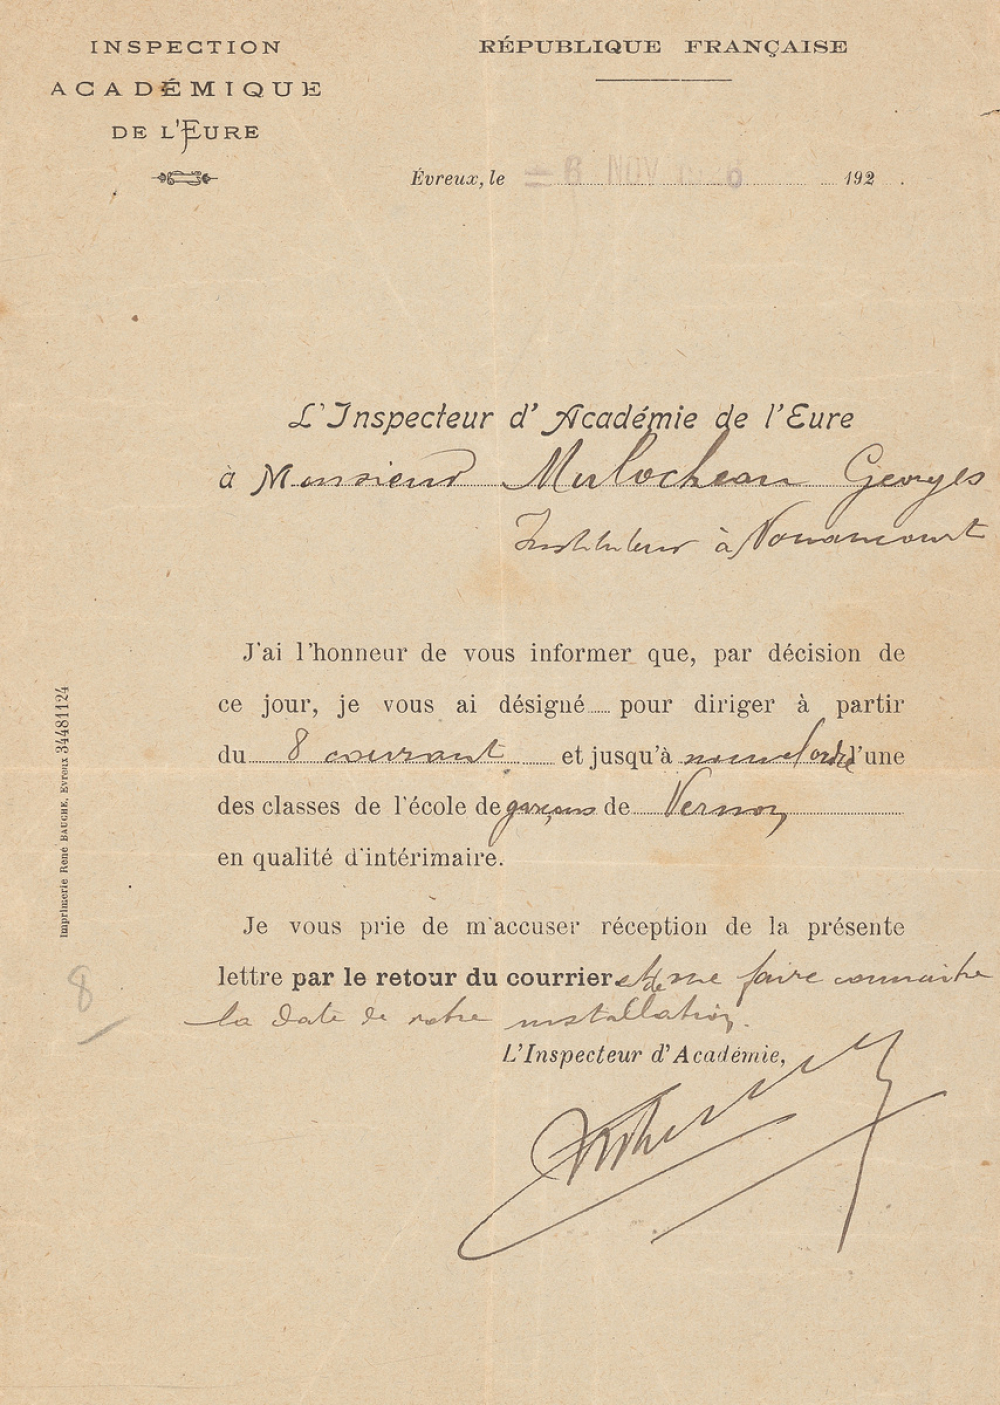 INSPECTION
ACADÉMIQUE
DE L'EURE
RÉPUBLIQUE FRANÇAISE
Évreux, le = 6 NOV 192 .
L'Inspecteur d'Académie de l'Eure
à Monsieur Mulocheau Georges
Instituteur à Nonancourt
J'ai l'honneur de vous informer que, par décision de
ce jour, je vous ai désigné pour diriger à partir
du 8 courant et jusqu'à nouvel ordre l'une
des classes de l'école de garçons de Vernon
en qualité d'intérimaire.
Je vous prie de m'accuser réception de la présente
lettre par le retour du courrier et de me faire connaître
la date de votre installation.
L'Inspecteur d'Académie,
Imprimerie René BAUCHE, Evreux 34481124
8